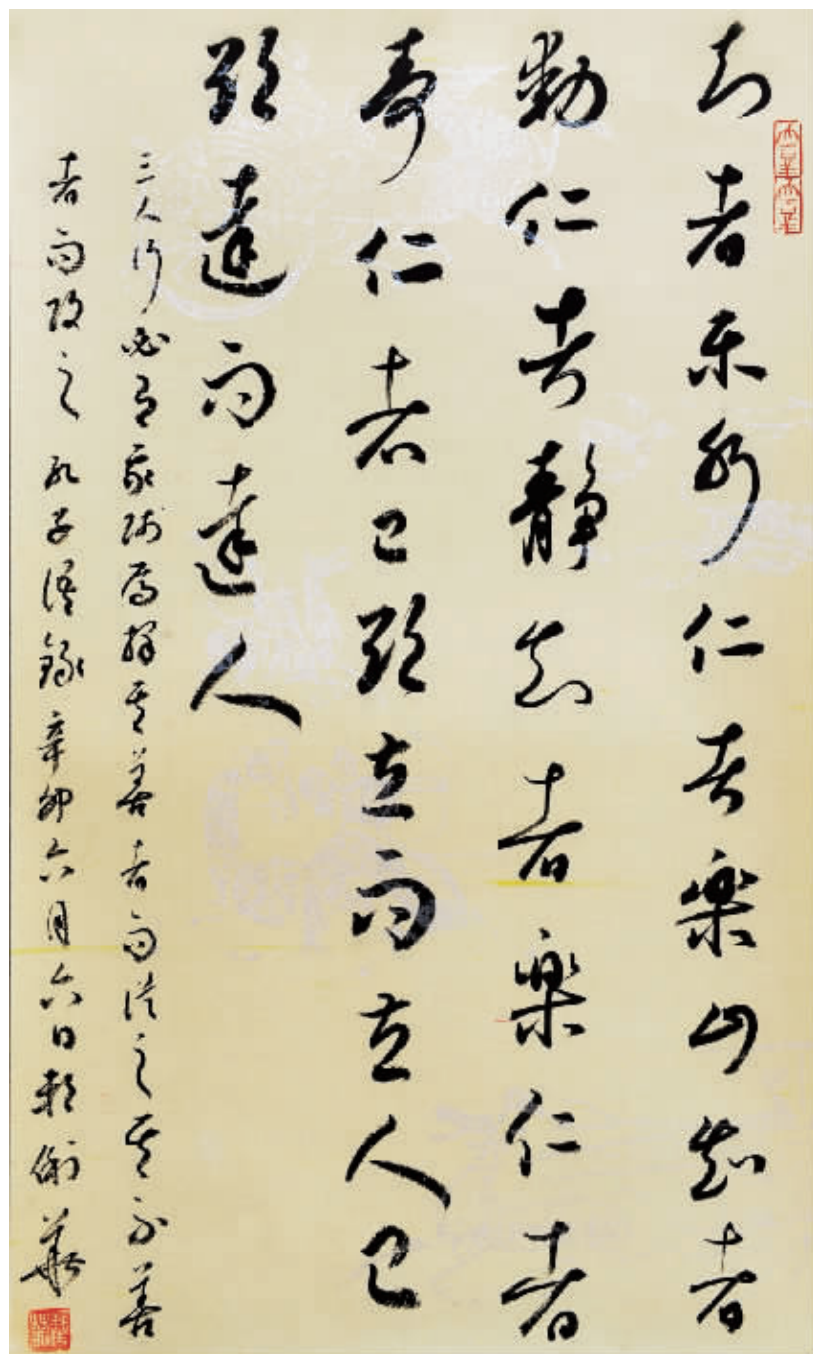 知者乐水仁者樂山知者
動仁者静知者樂仁者
寿仁者己欲立而立人己
欲達而達人
三人行必有我师焉择其善者而従之其不善
者而改之孔子語録辛卯六月六日俐華